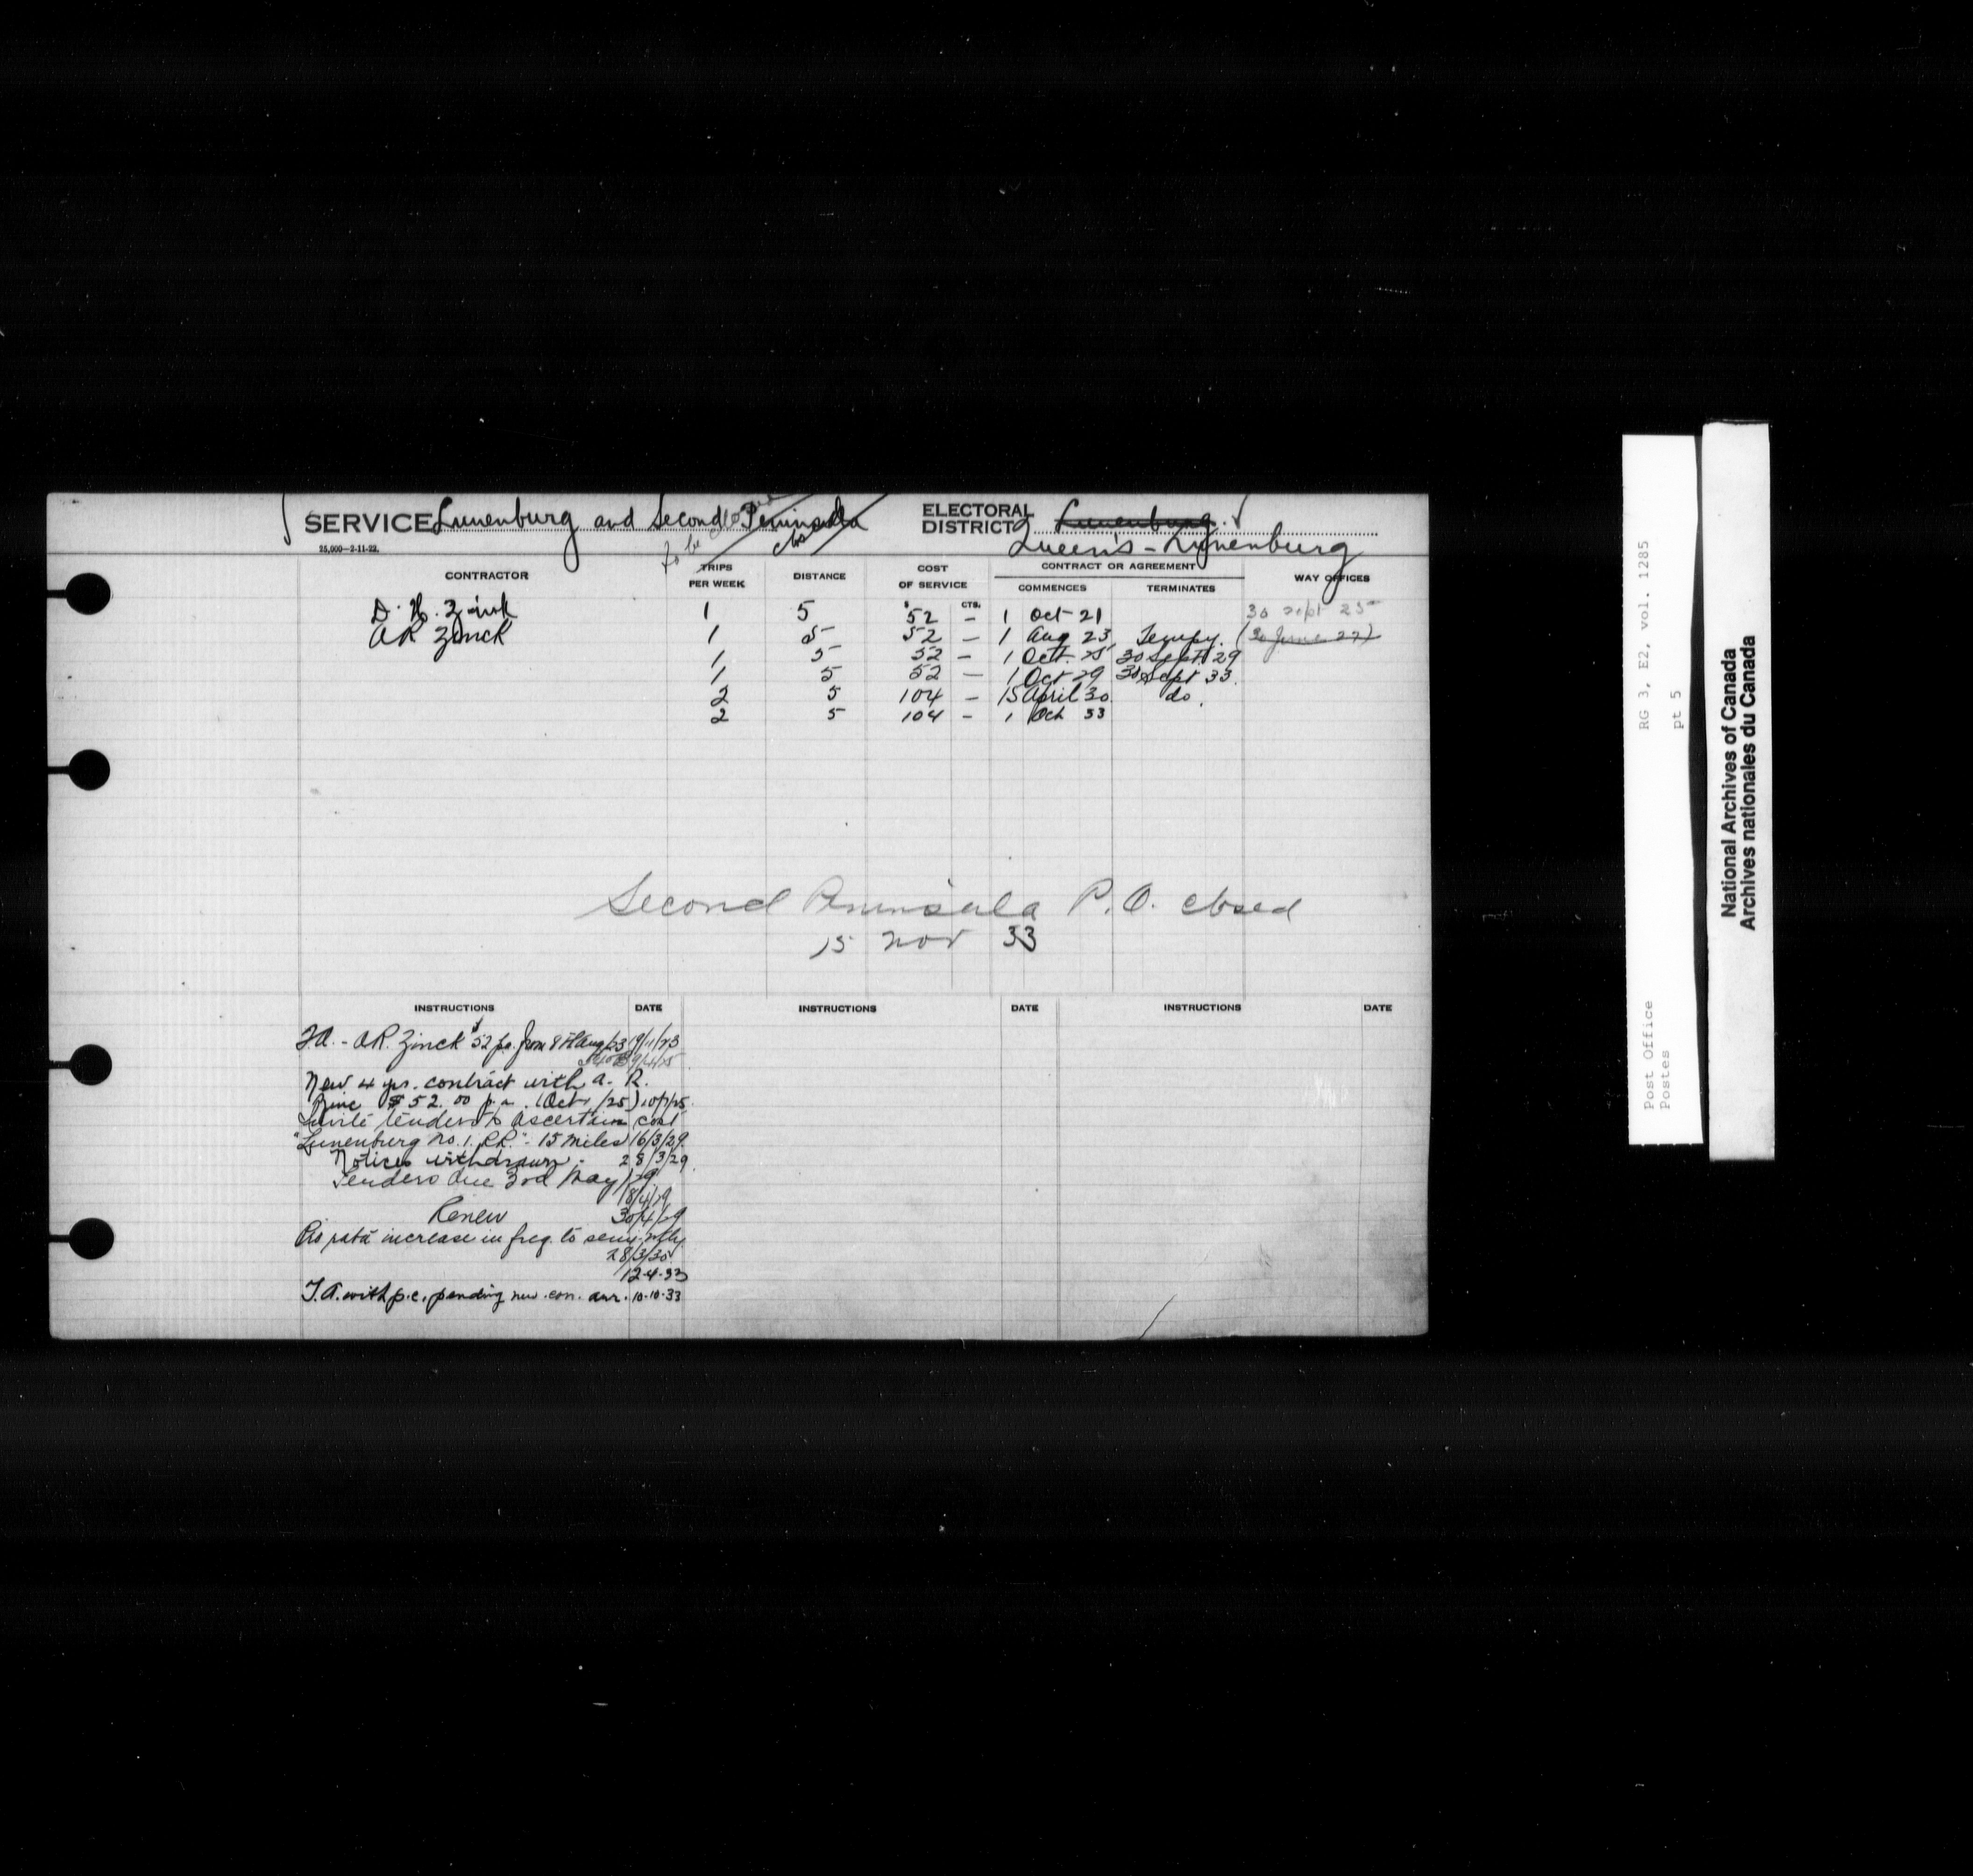 SERVICE Lunenburg and Second Peninsula
to be closed
closed
ELECTORAL DISTRICT Lunenburg.
Queen's - Lunenburg
25,000—2-11-22.
CONTRACTOR TRIPS PER WEEK DISTANCE COST OF SERVICE CONTRACT OR AGREEMENT WAY OFFICES
COMMENCES TERMINATES
$ CTS.
D. H. Zink 1 5 52 – 1 Oct 21 30 Sept 25
A R Zinck 1 5 52 – 1 Aug 23 Tempy. (30 June 27)
1 5 52 – 1 Oct. 25 30 Sept 29
1 5 52 – 1 Oct 29 30 Sept 33
2 5 104 – 15 April 30 do.
2 5 104 – 1 Oct 33
Second Peninsula P.O. closed
15 Nov 33
INSTRUCTIONS DATE INSTRUCTIONS DATE INSTRUCTIONS DATE
T.A. - A.R. Zinck $52 p.a. from 8th Aug/23 19/11/23
9/4/25
New 4 yrs. contract with A. R.
Zinc $52.00 p.a. (Oct 1/25) 10/7/25
Invite tenders to ascertain cost
"Lunenburg No. 1. R.R." - 15 miles 16/3/29.
Notices withdrawn. 28/3/29
Tenders due 3rd May/29
18/4/29
Renew 30/4/29
Pro rata increase in freq. to semi-wkly.
28/3/30
12-4-33
T.A. with p.c. pending new con. arr. 10-10-33
RG 3, E2, vol. 1285
pt 5
Post Office
Postes
National Archives of Canada
Archives nationales du Canada